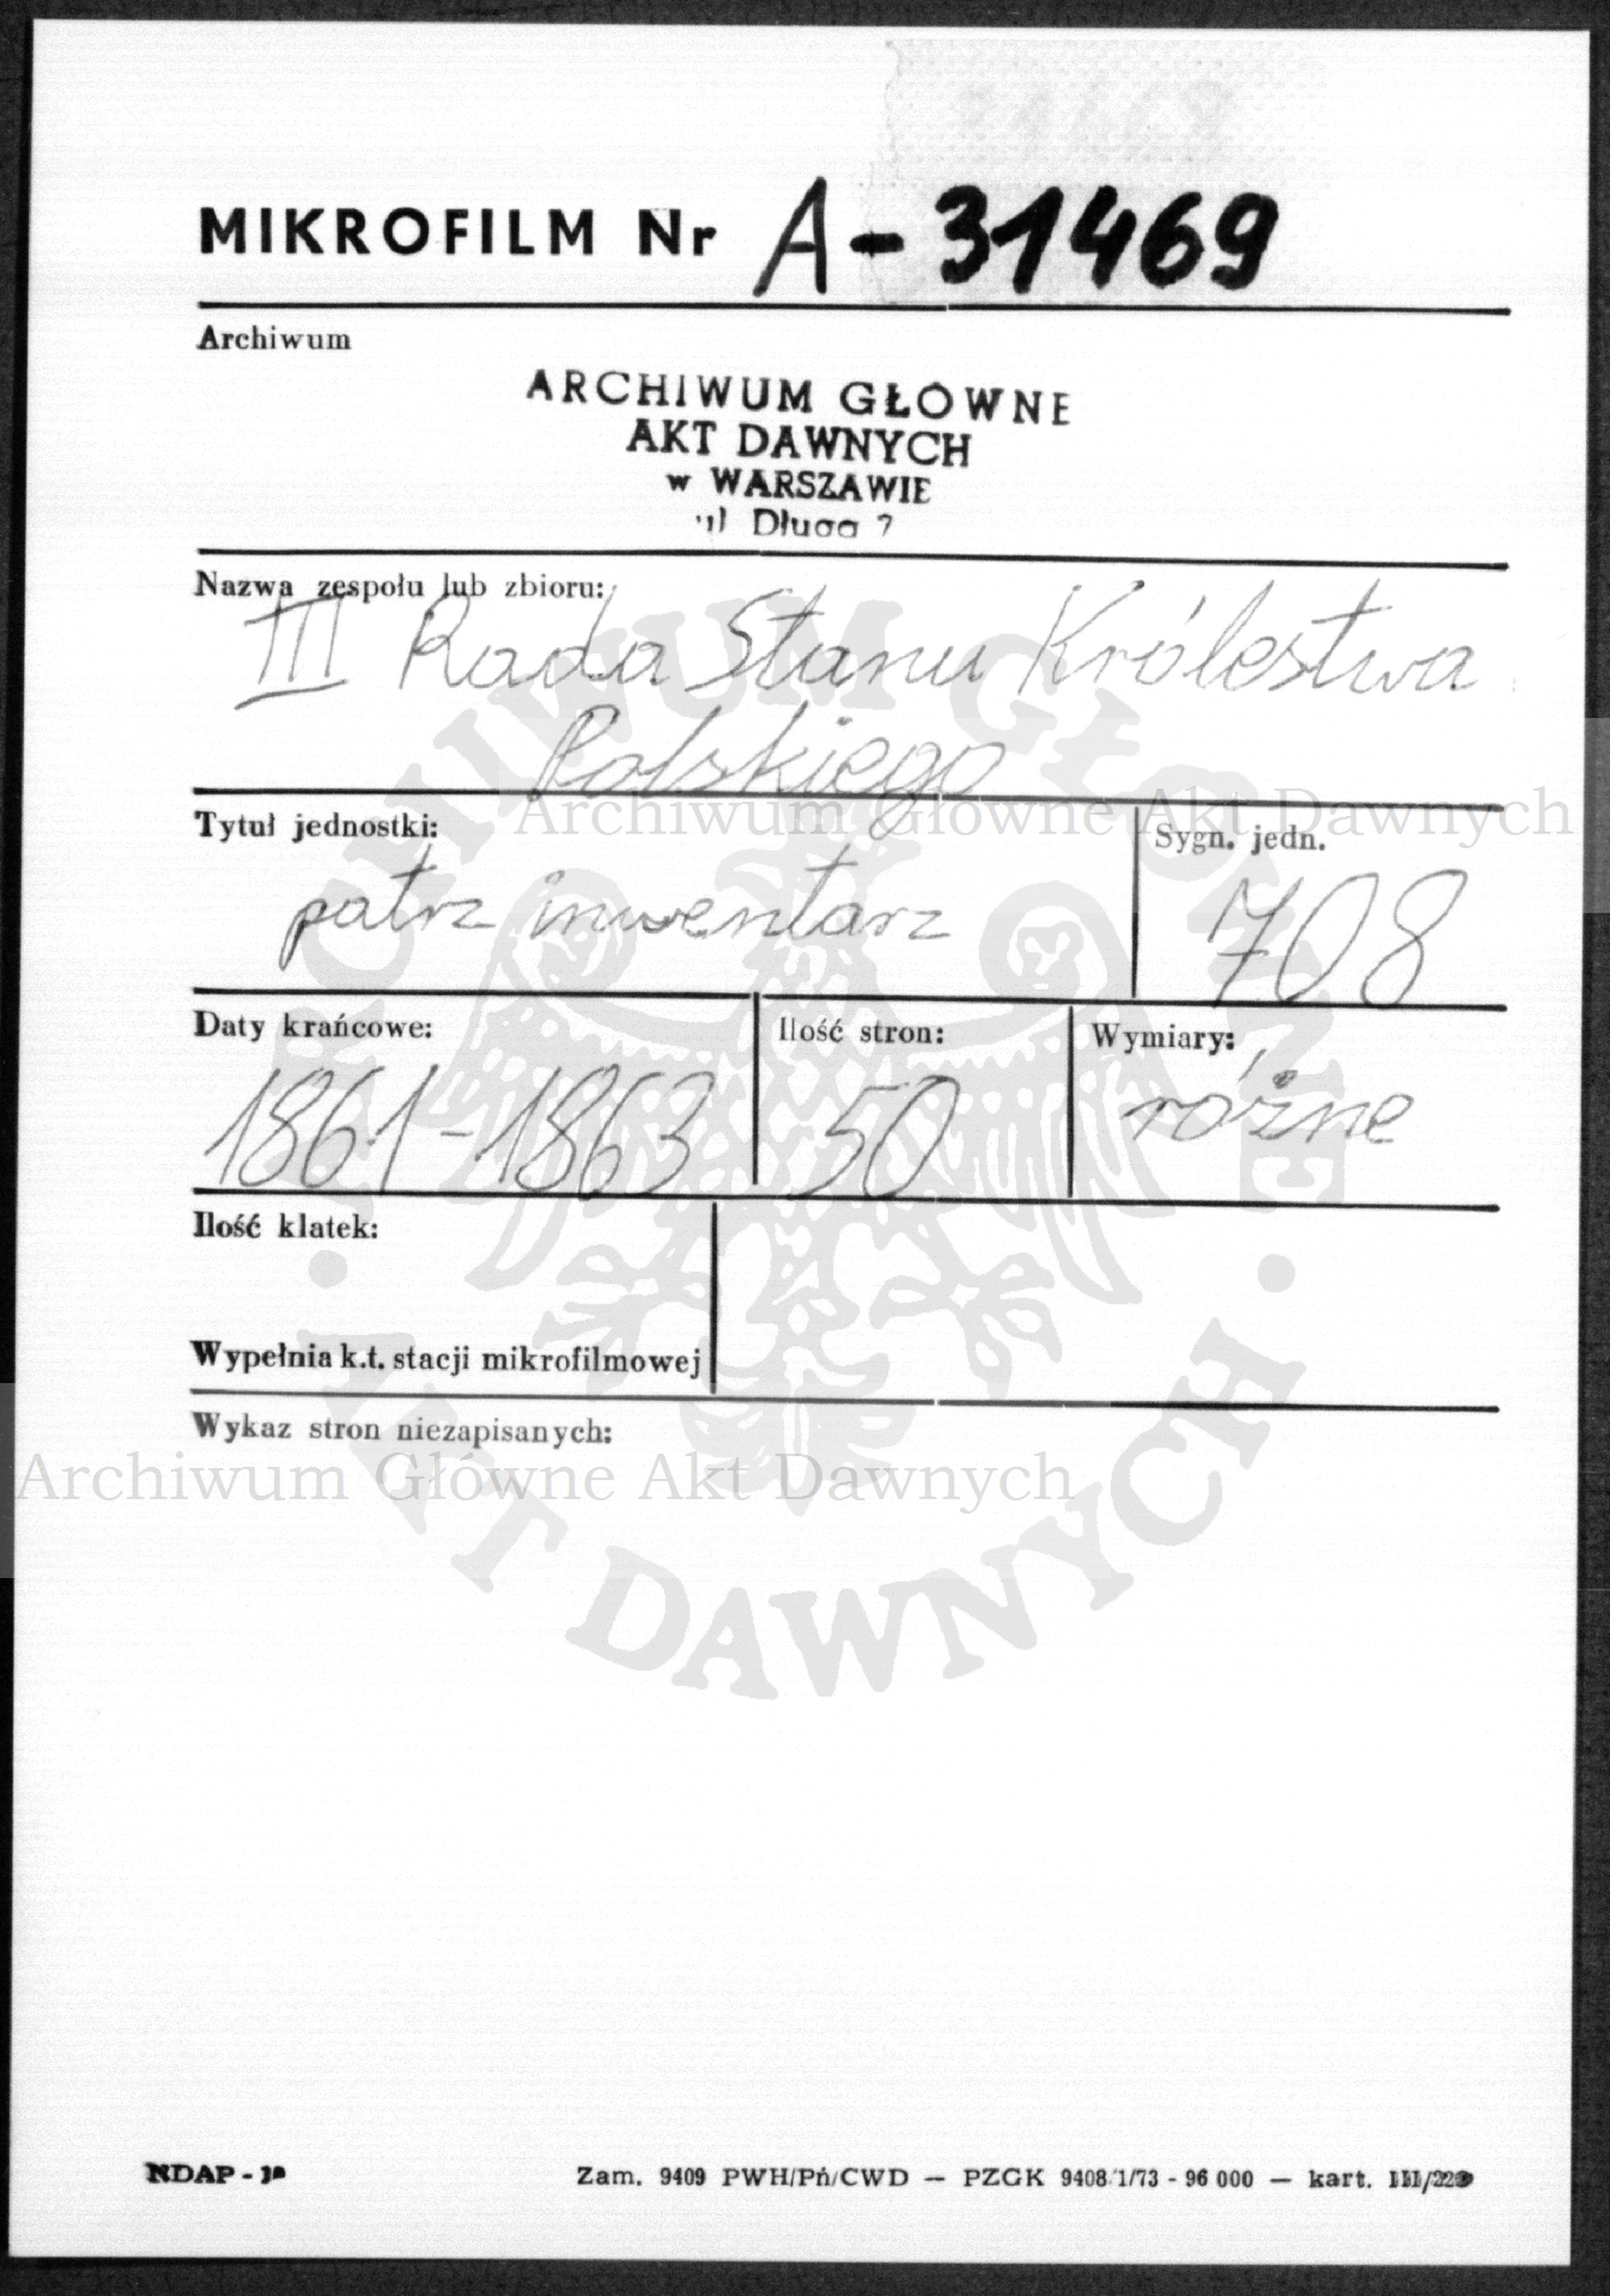 MIKROFILM Nr A-31469
Archiwum
ARCHIWUM GŁÓWNE
AKT DAWNYCH
w WARSZAWIE
ul Długa 7
Nazwa zespołu lub zbioru:
III Rada Stanu Królestwa
Polskiego
Archiwum Główne Akt Dawnych
Tytuł jednostki:
Sygn. jedn.
patrz inwentarz
708
Daty krańcowe:
Ilość stron:
Wymiary:
1861-1863
50
różne
Ilość klatek:
Wypełnia k.t. stacji mikrofilmowej
Wykaz stron niezapisanych:
Archiwum Główne Akt Dawnych
ARCHIWUM GŁÓWNE · AKT DAWNYCH ·
NDAP -
Zam. 9409 PWH/Pń/CWD — PZGK 9408/1/73 - 96 000 — kart.